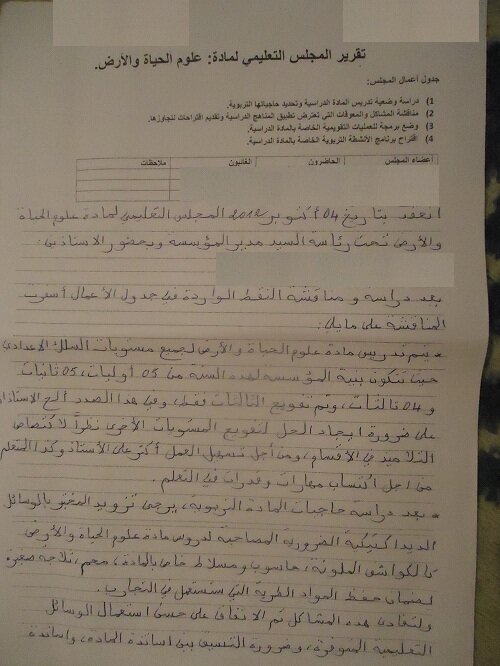 تقرير المجلس التعليمي لمادة: علوم الحياة والأرض.
جدول أعمال المجلس:
1) دراسة وضعية تدريس المادة الدراسية وتحديد حاجياتها التربوية.
2) مناقشة المشاكل والمعوقات التي تعترض تطبيق المناهج الدراسية وتقديم اقتراحات لتجاوزها.
3) وضع برمجة للعمليات التقويمية الخاصة بالمادة الدراسية.
4) اقتراح برنامج الأنشطة التربوية الخاصة بالمادة الدراسية.
أعضاء المجلس الحاضرون الغائبون ملاحظات
انعقد بتاريخ 04 أكتوبر 2012 المجلس التعليمي لمادة علوم الحياة
والأرض تحت رئاسة السيد مدير المؤسسة وبحضور الاستاذين:
بعد دراسة و مناقشة النقط الواردة في جدول الأعمال أسفرت
المناقشة على مايلي:
* يتم تدريس مادة علوم الحياة والأرض لجميع مستويات السلك الاعدادي
حيث تتكون بنية المؤسسة لهذه السنة من 05 أوليات، 05 ثانيات
و 04 ثالثات، وتم تفويج الثالثات فقط، وفي هذا الصدد ألح الاستاذان
على ضرورة ايجاد الحل لتفويج المستويات الأخرى نظرا لاكتضاض
التلاميذ في الأقسام، ومن أجل تسهيل العمل أكثر على الأستاذ وكذا المتعلم
من اجل اكتساب مهارات وقدرات في التعلم.
* بعد دراسة حاجيات المادة التربوية، يرجى تزويد المختبر بالوسائل
الديداكتيكية الضرورية المصاحبة لدروس مادة علوم الحياة والأرض
كالكواشف الملونة، حاسوب ومسلاط خاص بالمادة، مجهر، ثلاجة صغيرة
لضمان حفظ المواد الطرية التي ستستعمل في التجارب.
ولتفادي هذه المشاكل تم الاتفاق على حسن استعمال الوسائل
التعليمية المتوفرة، وضرورة التنسيق بين اساتذة المادة، واساتذة